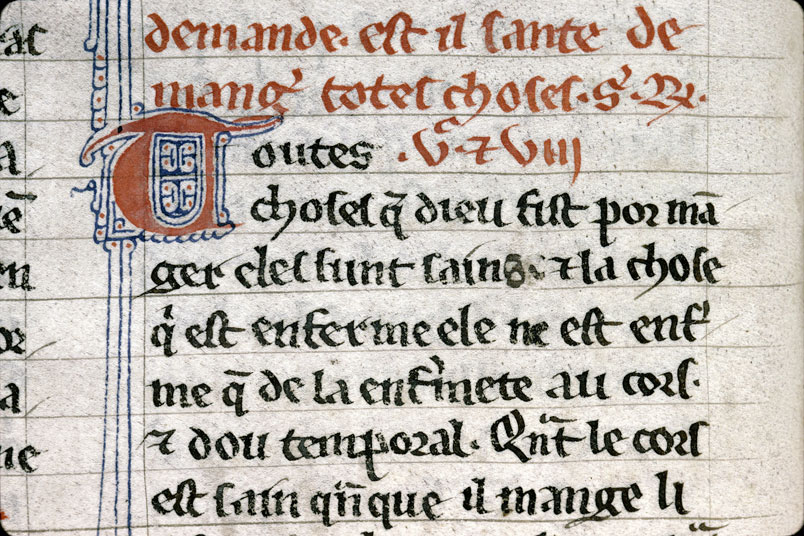 demande. est il sante de
mang̾ totes choses. S̾. R̾.
Toutes .Vᶜ. ⁊ Viij
choses q̃ dieu fist por mã
ger eles sunt saines ⁊ la chose
q̾ est enferme ele ne est enf̾
me q̃ de la enf̾mete au cors.
⁊ dou temporal. Qñt le cors
est sain qñque il mange li